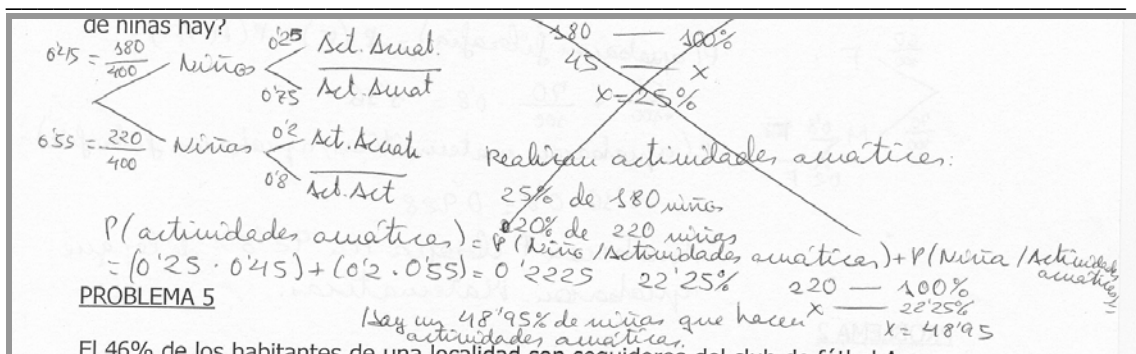 de niñas hay?
0'45 = 180/400 Niños 0'25 Act. Acuat.
0'75 Act. Acuat
0'55 = 220/400 Niñas 0'2 Act. Acuat
0'8 Act. Act
180 — 100%
45 — x
x = 25%
Realizan actividades acuáticas:
25% de 180 niños
20% de 220 niñas
P(actividades acuáticas) = P(Niño/Actividades acuáticas) + P(Niña/Actividades acuáticas) =
= (0'25 · 0'45) + (0'2 · 0'55) = 0'2225 22'25%
220 — 100%
x — 22'25%
x = 48'95
Hay un 48'95% de niñas que hacen
actividades acuáticas.
PROBLEMA 5
El 46% de los habitantes de una localidad son seguidores del club de fútbol A